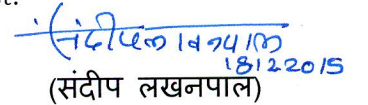 संदीप लखनपाल
18122015
(संदीप लखनपाल)